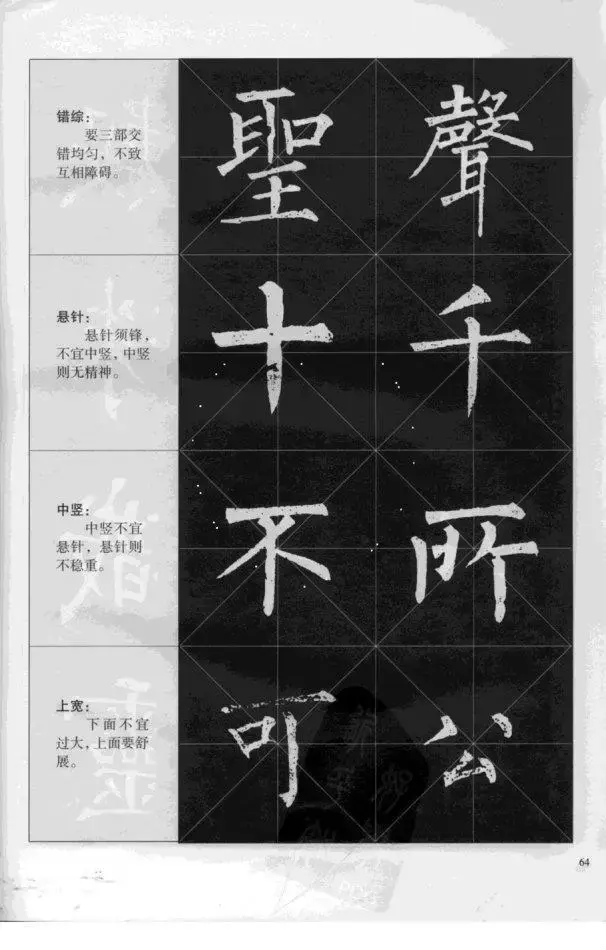 错综：
要三部交
错均匀，不致
互相障碍。
聖 聲
悬针：
悬针须锋，
不宜中竖，中竖
则无精神。
十 千
中竖：
中竖不宜
悬针，悬针则
不稳重。
不 所
上宽：
下面不宜
过大，上面要舒
展。
可 公
64